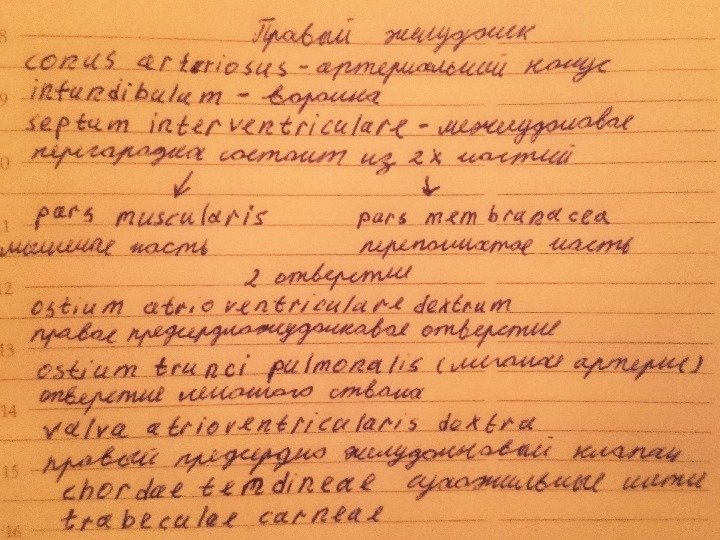 8
Правый желудочек
conus arteriosus - артериальный конус
9
infundibulum - воронка
septum interventriculare - межжелудочковое
10
перегородка состоит из 2х частей
↙ ↓
11
pars muscularis pars membranacea
мышечные часть перепончатое часть
12
2 отверстие
ostium atrioventriculare dextrum
правое предсердножелудочковое отверстие
13
ostium trunci pulmonalis (лёгочное артерие)
отверстие лёгочного ствола
14
valva atrioventricularis dextra
правый предсердно желудочковый клапан
15
chordae temdineae сухожильные нити
trabeculae carneae
16